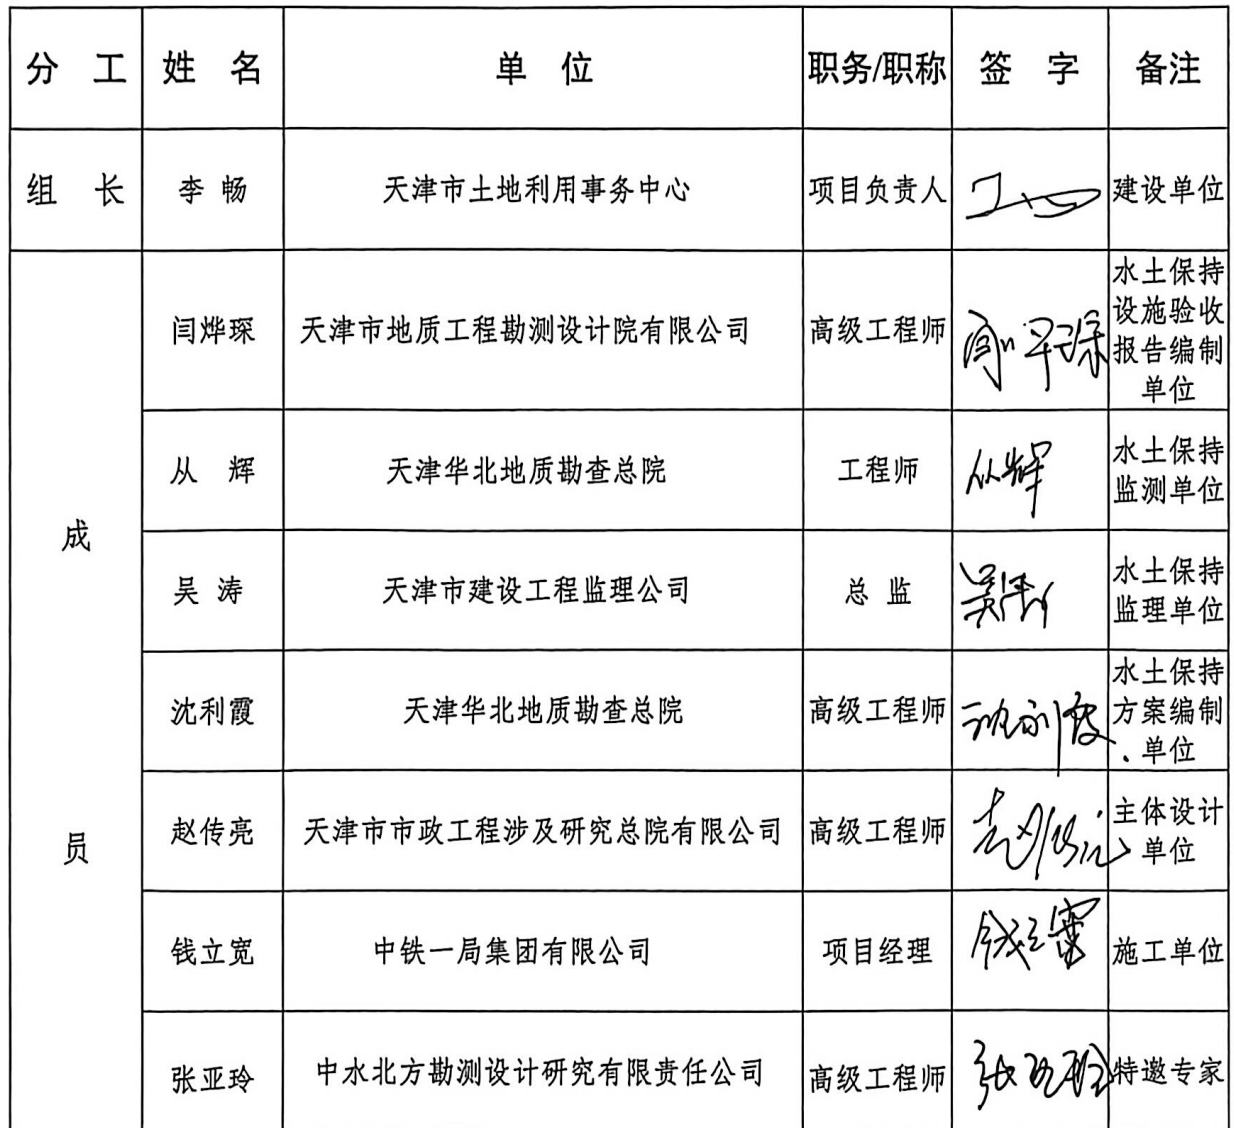 分 工 姓 名 单 位 职务/职称 签 字 备注
组 长 李 畅 天津市土地利用事务中心 项目负责人 建设单位
成 员
闫烨琛 天津市地质工程勘测设计院有限公司 高级工程师 闫烨琛 水土保持
设施验收
报告编制
单位
从 辉 天津华北地质勘查总院 工程师 从辉 水土保持
监测单位
吴 涛 天津市建设工程监理公司 总 监 吴涛 水土保持
监理单位
沈利霞 天津华北地质勘查总院 高级工程师 沈利霞 水土保持
方案编制
单位
赵传亮 天津市市政工程涉及研究总院有限公司 高级工程师 赵传亮 主体设计
单位
钱立宽 中铁一局集团有限公司 项目经理 钱立宽 施工单位
张亚玲 中水北方勘测设计研究有限责任公司 高级工程师 张亚玲 特邀专家